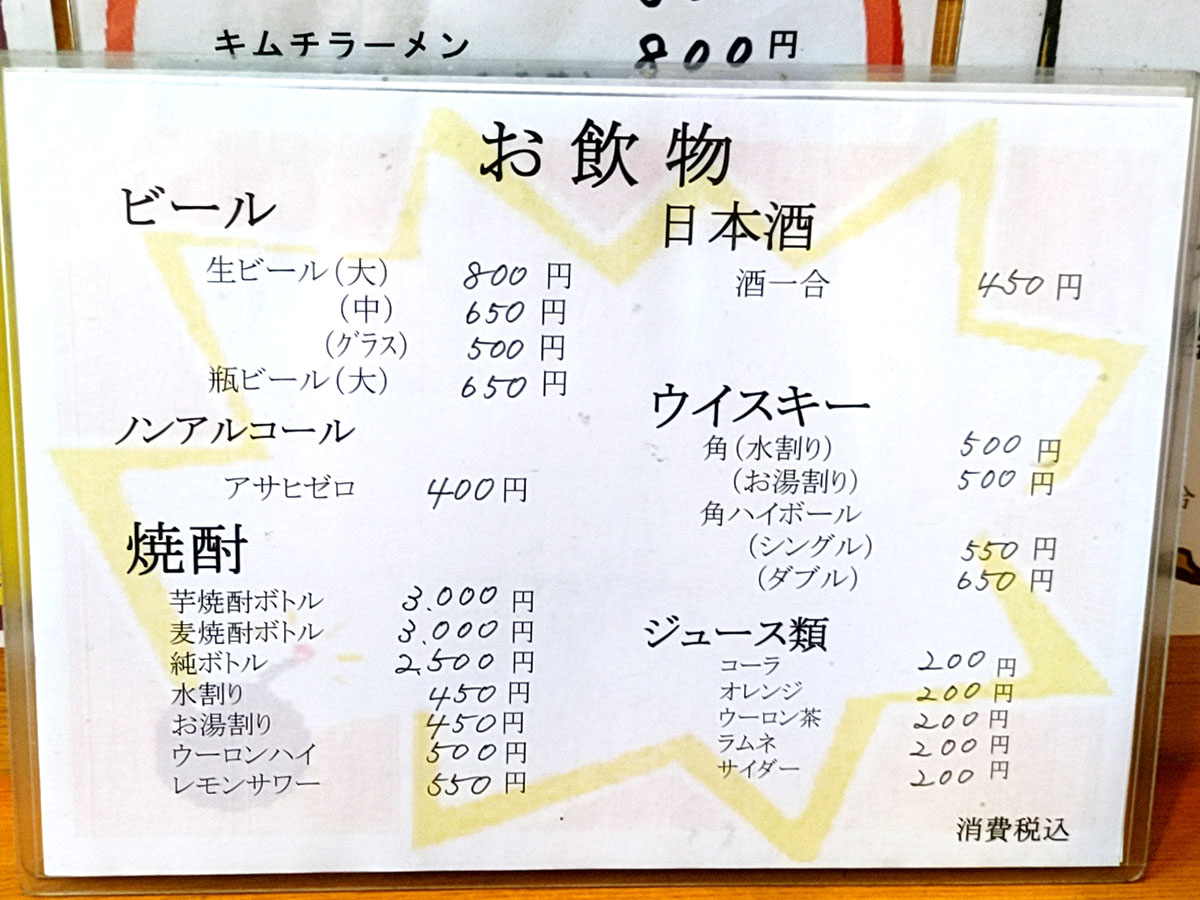 キムチラーメン 800円
お飲物
ビール
生ビール(大) 800円
(中) 650円
(グラス) 500円
瓶ビール(大) 650円
ノンアルコール
アサヒゼロ 400円
焼酎
芋焼酎ボトル 3,000円
麦焼酎ボトル 3,000円
純ボトル 2,500円
水割り 450円
お湯割り 450円
ウーロンハイ 500円
レモンサワー 550円
日本酒
酒一合 450円
ウイスキー
角(水割り) 500円
(お湯割り) 500円
角ハイボール
(シングル) 550円
(ダブル) 650円
ジュース類
コーラ 200円
オレンジ 200円
ウーロン茶 200円
ラムネ 200円
サイダー 200円
消費税込